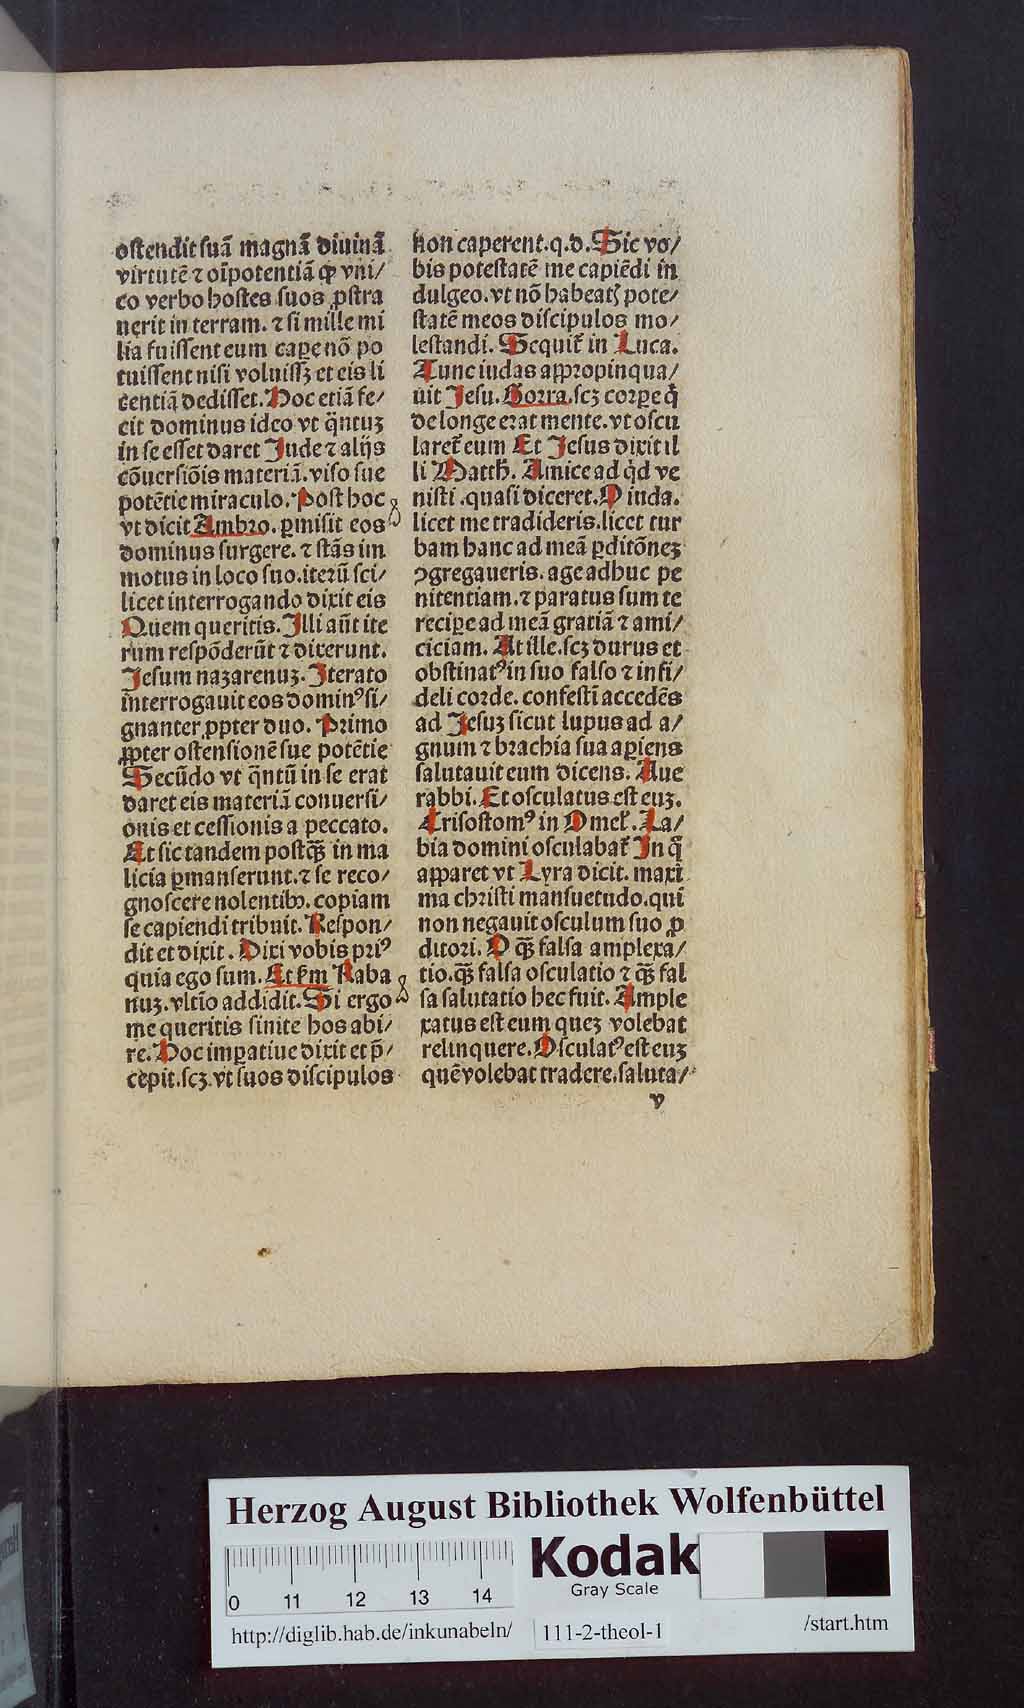 ostendit suã magnã diuinã
virtutẽ ⁊ oĩpotentiã ꝙ vni/
co verbo hostes suos ꝓstra
uerit in terram. ⁊ si mille mi
lia fuissent eum caꝑe nõ po
tuissent nisi voluissꝫ et eis li
centiã dedisset. Hoc etiã fe/
cit dominus ideo vt q̃ntuꝫ
in se esset daret Jude ⁊ alijs
cõuersiõis materiã. viso sue
potẽtie miraculo. Post hoc
vt dicit Ambro. ꝑmisit eos
dominus surgere. ⁊ stãs im
motus in loco suo. iterũ sci/
licet interrogando dixit eis
Quem queritis. Illi aũt ite
rum respõderũt ⁊ dixerunt.
Jesum nazarenuꝫ. Iterato
interrogauit eos dominꝰ si/
gnanter ꝓpter duo. Primo
ꝓpter ostensionẽ sue potẽtie
Secũdo vt q̃ntũ in se erat
daret eis materiã conuersi/
onis et cessionis a peccato.
Et sic tandem postq̃ꝫ in ma
licia ꝑmanserunt. ⁊ se reco/
gnoscere nolentibꝰ. copiam
se capiendi tribuit. Respon/
dit et dixit. Dixi vobis priꝰ
quia ego sum. Et ẜm Raba
nuꝫ. vltĩo addidit. Si ergo
me queritis sinite hos abi/
re. Hoc imꝑatiue dixit et p̃/
cepit. scꝫ. vt suos discipulos
non caperent. q. d. Sic vo/
bis potestatẽ me capiẽdi in
dulgeo. vt nõ habeatꝭ pote/
statẽ meos discipulos mo/
lestandi. Sequit᷑ in Luca.
Tunc iudas appropinqua/
uit Jesu. Gorra. scꝫ corꝑe q̇
de longe erat mente. vt oscu
laret᷑ eum Et Jesus dixit il
li Matth. Amice ad qͥd ve
nisti. quasi diceret. O iuda.
licet me tradideris. licet tur
bam hanc ad meã ꝑditõneꝫ
ꝯgregaueris. age adhuc pe
nitentiam. ⁊ paratus sum te
reciꝑe ad meã gratiã ⁊ ami/
ciciam. At ille. scꝫ durus et
obstinatꝰ in suo falso ⁊ infi/
deli corde. confestĩ accedẽs
ad Jesuꝫ sicut lupus ad a/
gnum ⁊ brachia sua aꝑiens
salutauit eum dicens. Aue
rabbi. Et osculatus est euꝫ.
Crisostomꝰ in Omel᷑. La/
bia domini osculabat᷑ In q̃
apparet vt Lyra dicit. maxi
ma christi mansuetudo. qui
non negauit osculum suo ꝓ
ditori. O q̃ꝫ falsa amplexa/
tio. q̃ꝫ falsa osculatio ⁊ q̃ꝫ fal
sa salutatio hec fuit. Ample
xatus est eum queꝫ volebat
relinquere. Osculatꝰ est euꝫ
quẽ volebat tradere. saluta/
v
Herzog August Bibliothek Wolfenbüttel
Kodak
Gray Scale
0 11 12 13 14
http://diglib.hab.de/inkunabeln/ 111-2-theol-1 /start.htm